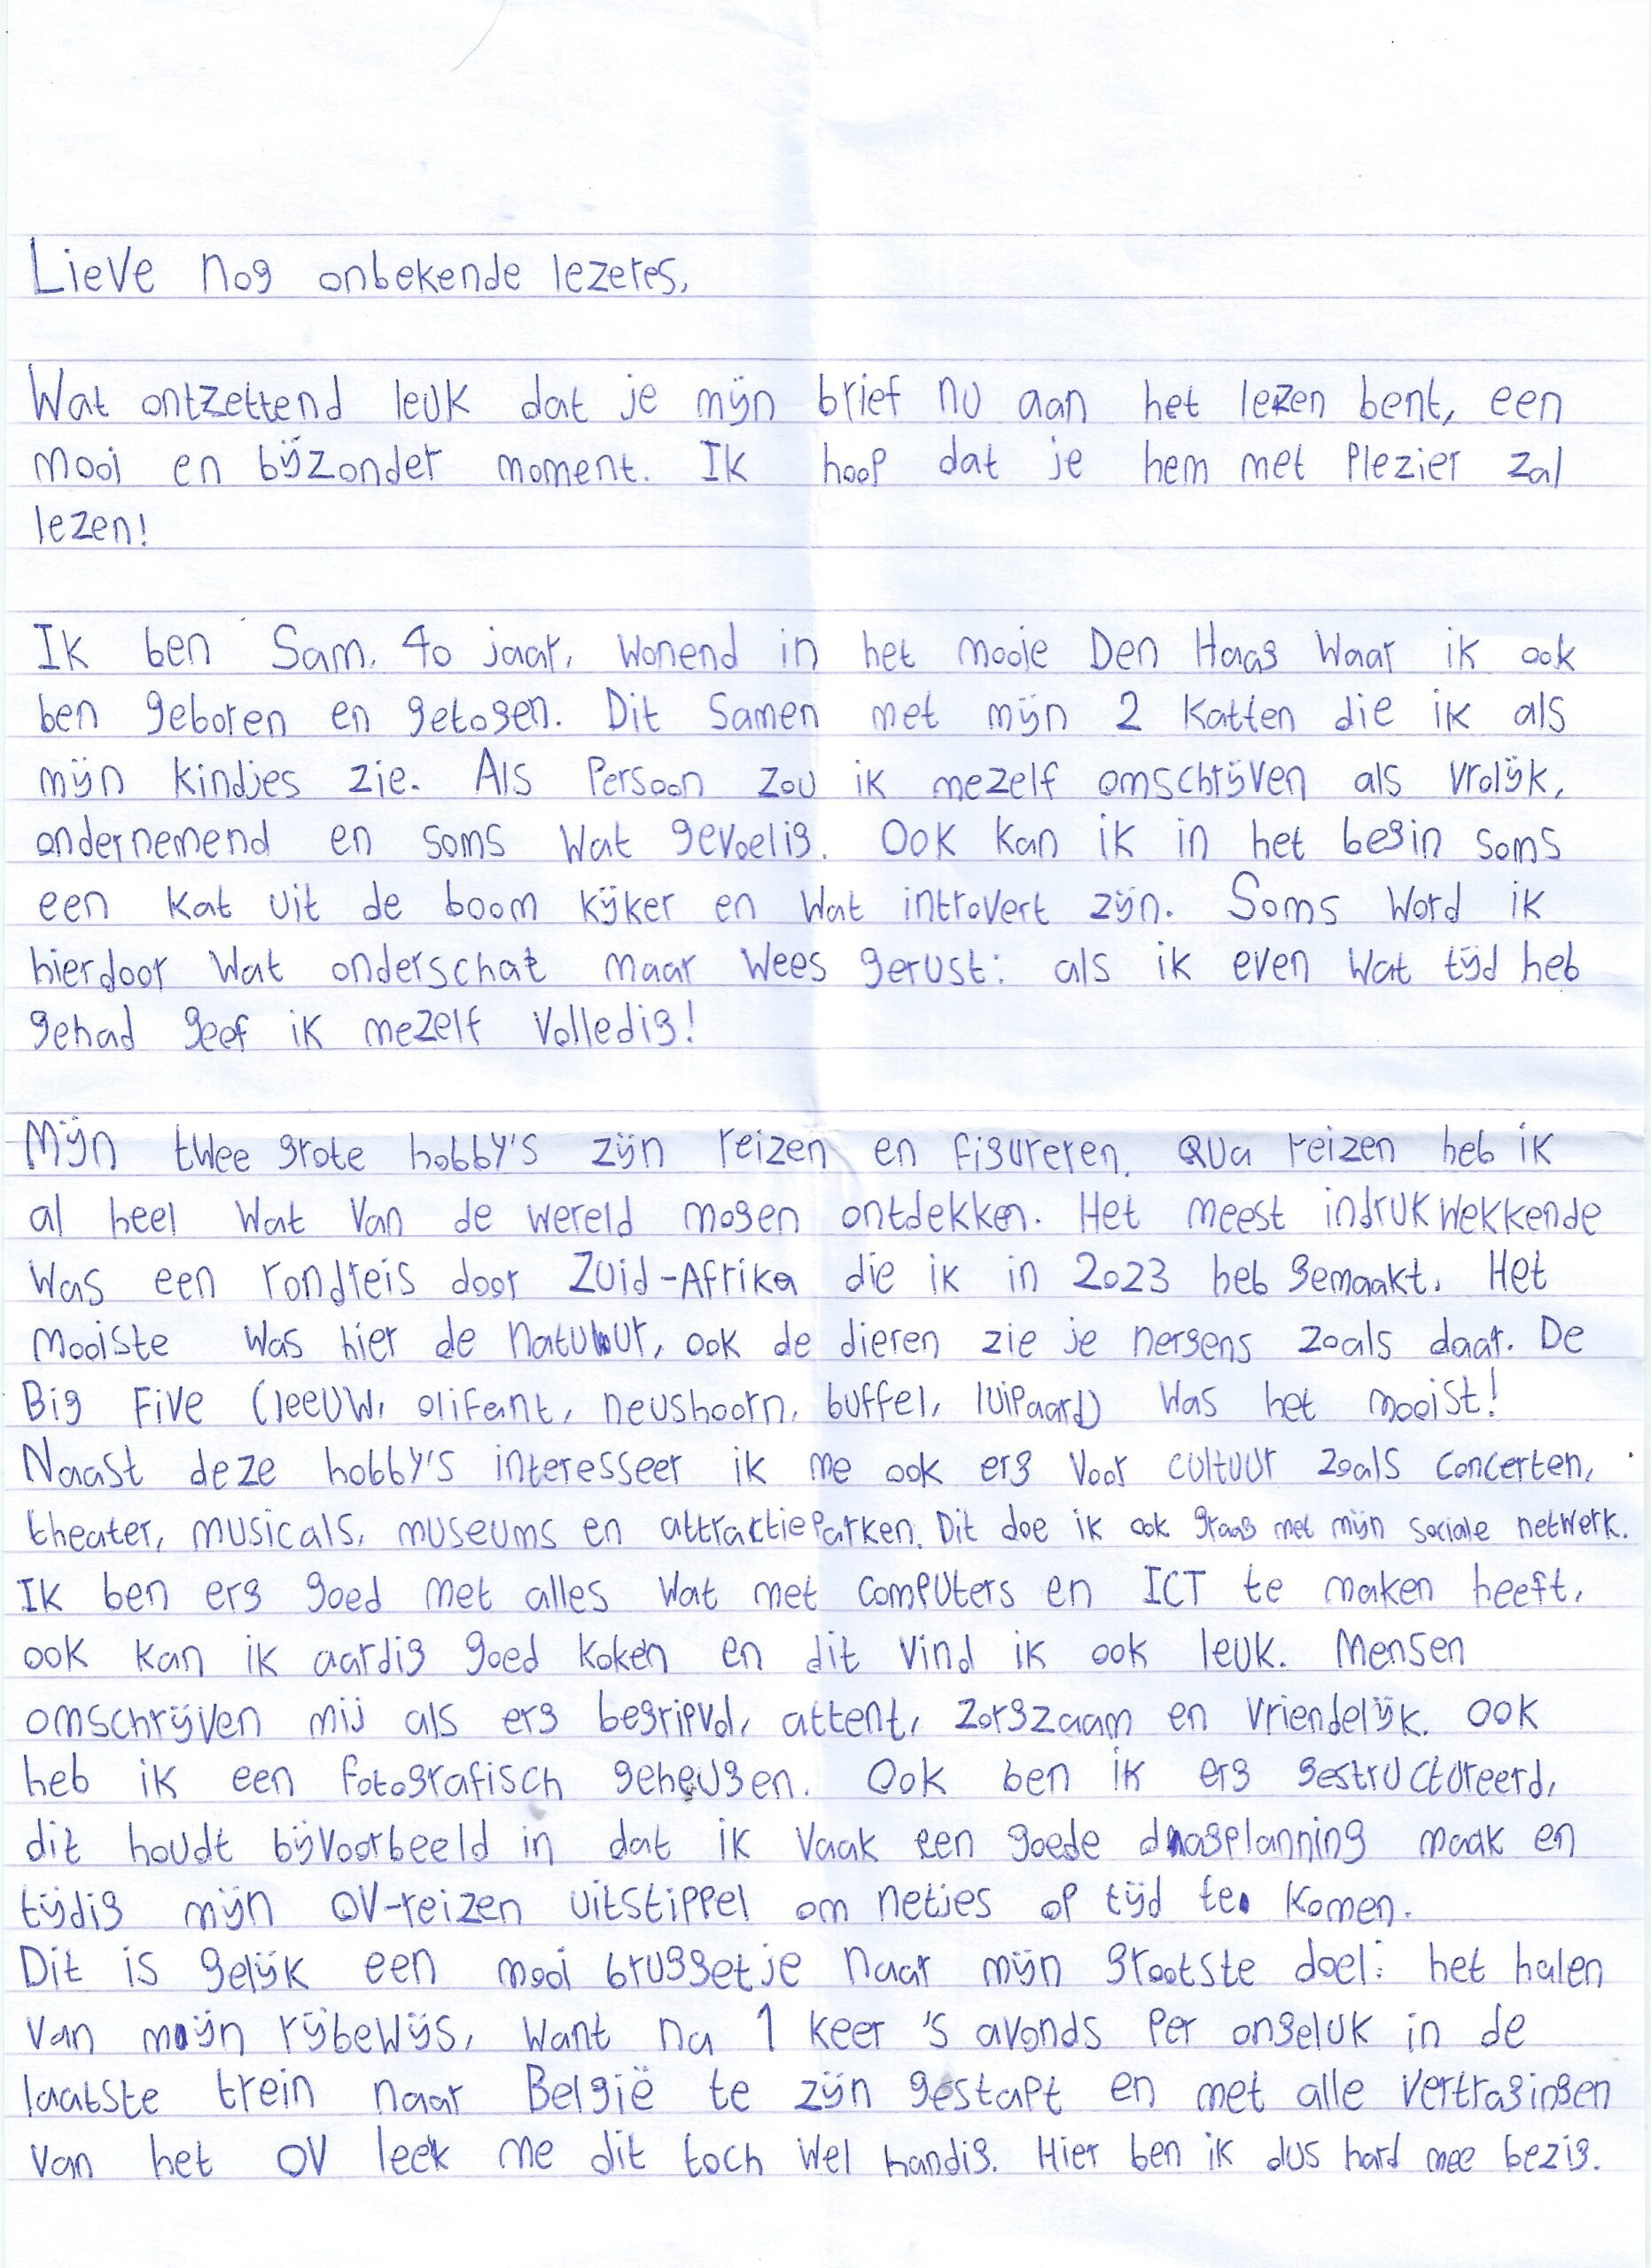 Lieve nog onbekende lezeres,
Wat ontzettend leuk dat je mijn brief nu aan het lezen bent, een
mooi en bijzonder moment. Ik hoop dat je hem met plezier zal
lezen!
Ik ben Sam, 40 jaar, wonend in het mooie Den Haag waar ik ook
ben geboren en getogen. Dit samen met mijn 2 katten die ik als
mijn kindjes zie. Als persoon zou ik mezelf omschrijven als vrolijk,
ondernemend en soms wat gevoelig. Ook kan ik in het begin soms
een kat uit de boom kijker en wat introvert zijn. Soms word ik
hierdoor wat onderschat maar wees gerust: als ik even wat tijd heb
gehad geef ik mezelf volledig!
Mijn twee grote hobby's zijn reizen en figureren. Qua reizen heb ik
al heel wat van de wereld mogen ontdekken. Het meest indrukwekkende
was een rondreis door Zuid-Afrika die ik in 2023 heb gemaakt. Het
mooiste was hier de natuur, ook de dieren zie je nergens zoals daar. De
Big Five (leeuw, olifant, neushoorn, buffel, luipaard) was het mooist!
Naast deze hobby's interesseer ik me ook erg voor cultuur zoals concerten,
theater, musicals, museums en attractieparken. Dit doe ik ook graag met mijn sociale netwerk.
Ik ben erg goed met alles wat met computers en ICT te maken heeft,
ook kan ik aardig goed koken en dit vind ik ook leuk. Mensen
omschrijven mij als erg begripvol, attent, zorgzaam en vriendelijk. Ook
heb ik een fotografisch geheugen. Ook ben ik erg gestructureerd,
dit houdt bijvoorbeeld in dat ik vaak een goede dagplanning maak en
tijdig mijn OV-reizen uitstippel om netjes op tijd te komen.
Dit is gelijk een mooi bruggetje naar mijn grootste doel: het halen
van mijn rijbewijs, want na 1 keer 's avonds per ongeluk in de
laatste trein naar België te zijn gestapt en met alle vertragingen
van het OV leek me dit toch wel handig. Hier ben ik dus hard mee bezig.